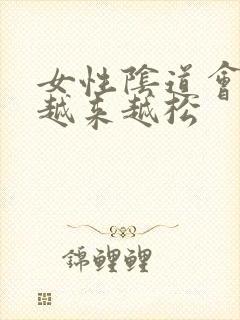 女性陰道會
越来越松
錦鯉鯉